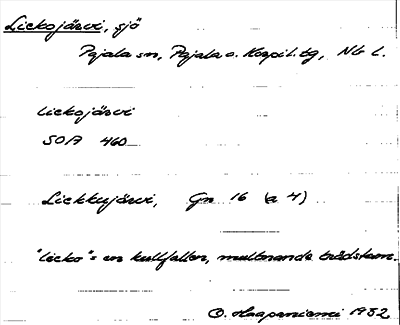 Liekojärvi, sjö
Pajala sn, Pajala o. Korpil. tg, Nb l.
liekojärvi
SOA 460
Liekkujärvi, Gn 16 (a 4)
"lieko" = en kullfallen, multnande trädstam.
O. Haapaniemi 1932